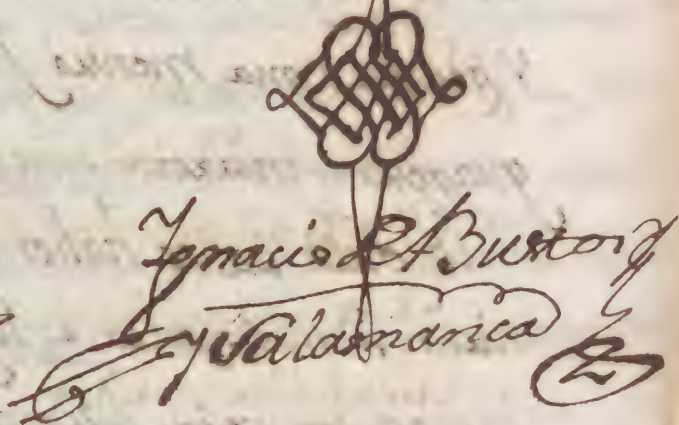 Ignacio de Bustos
y Salamanca